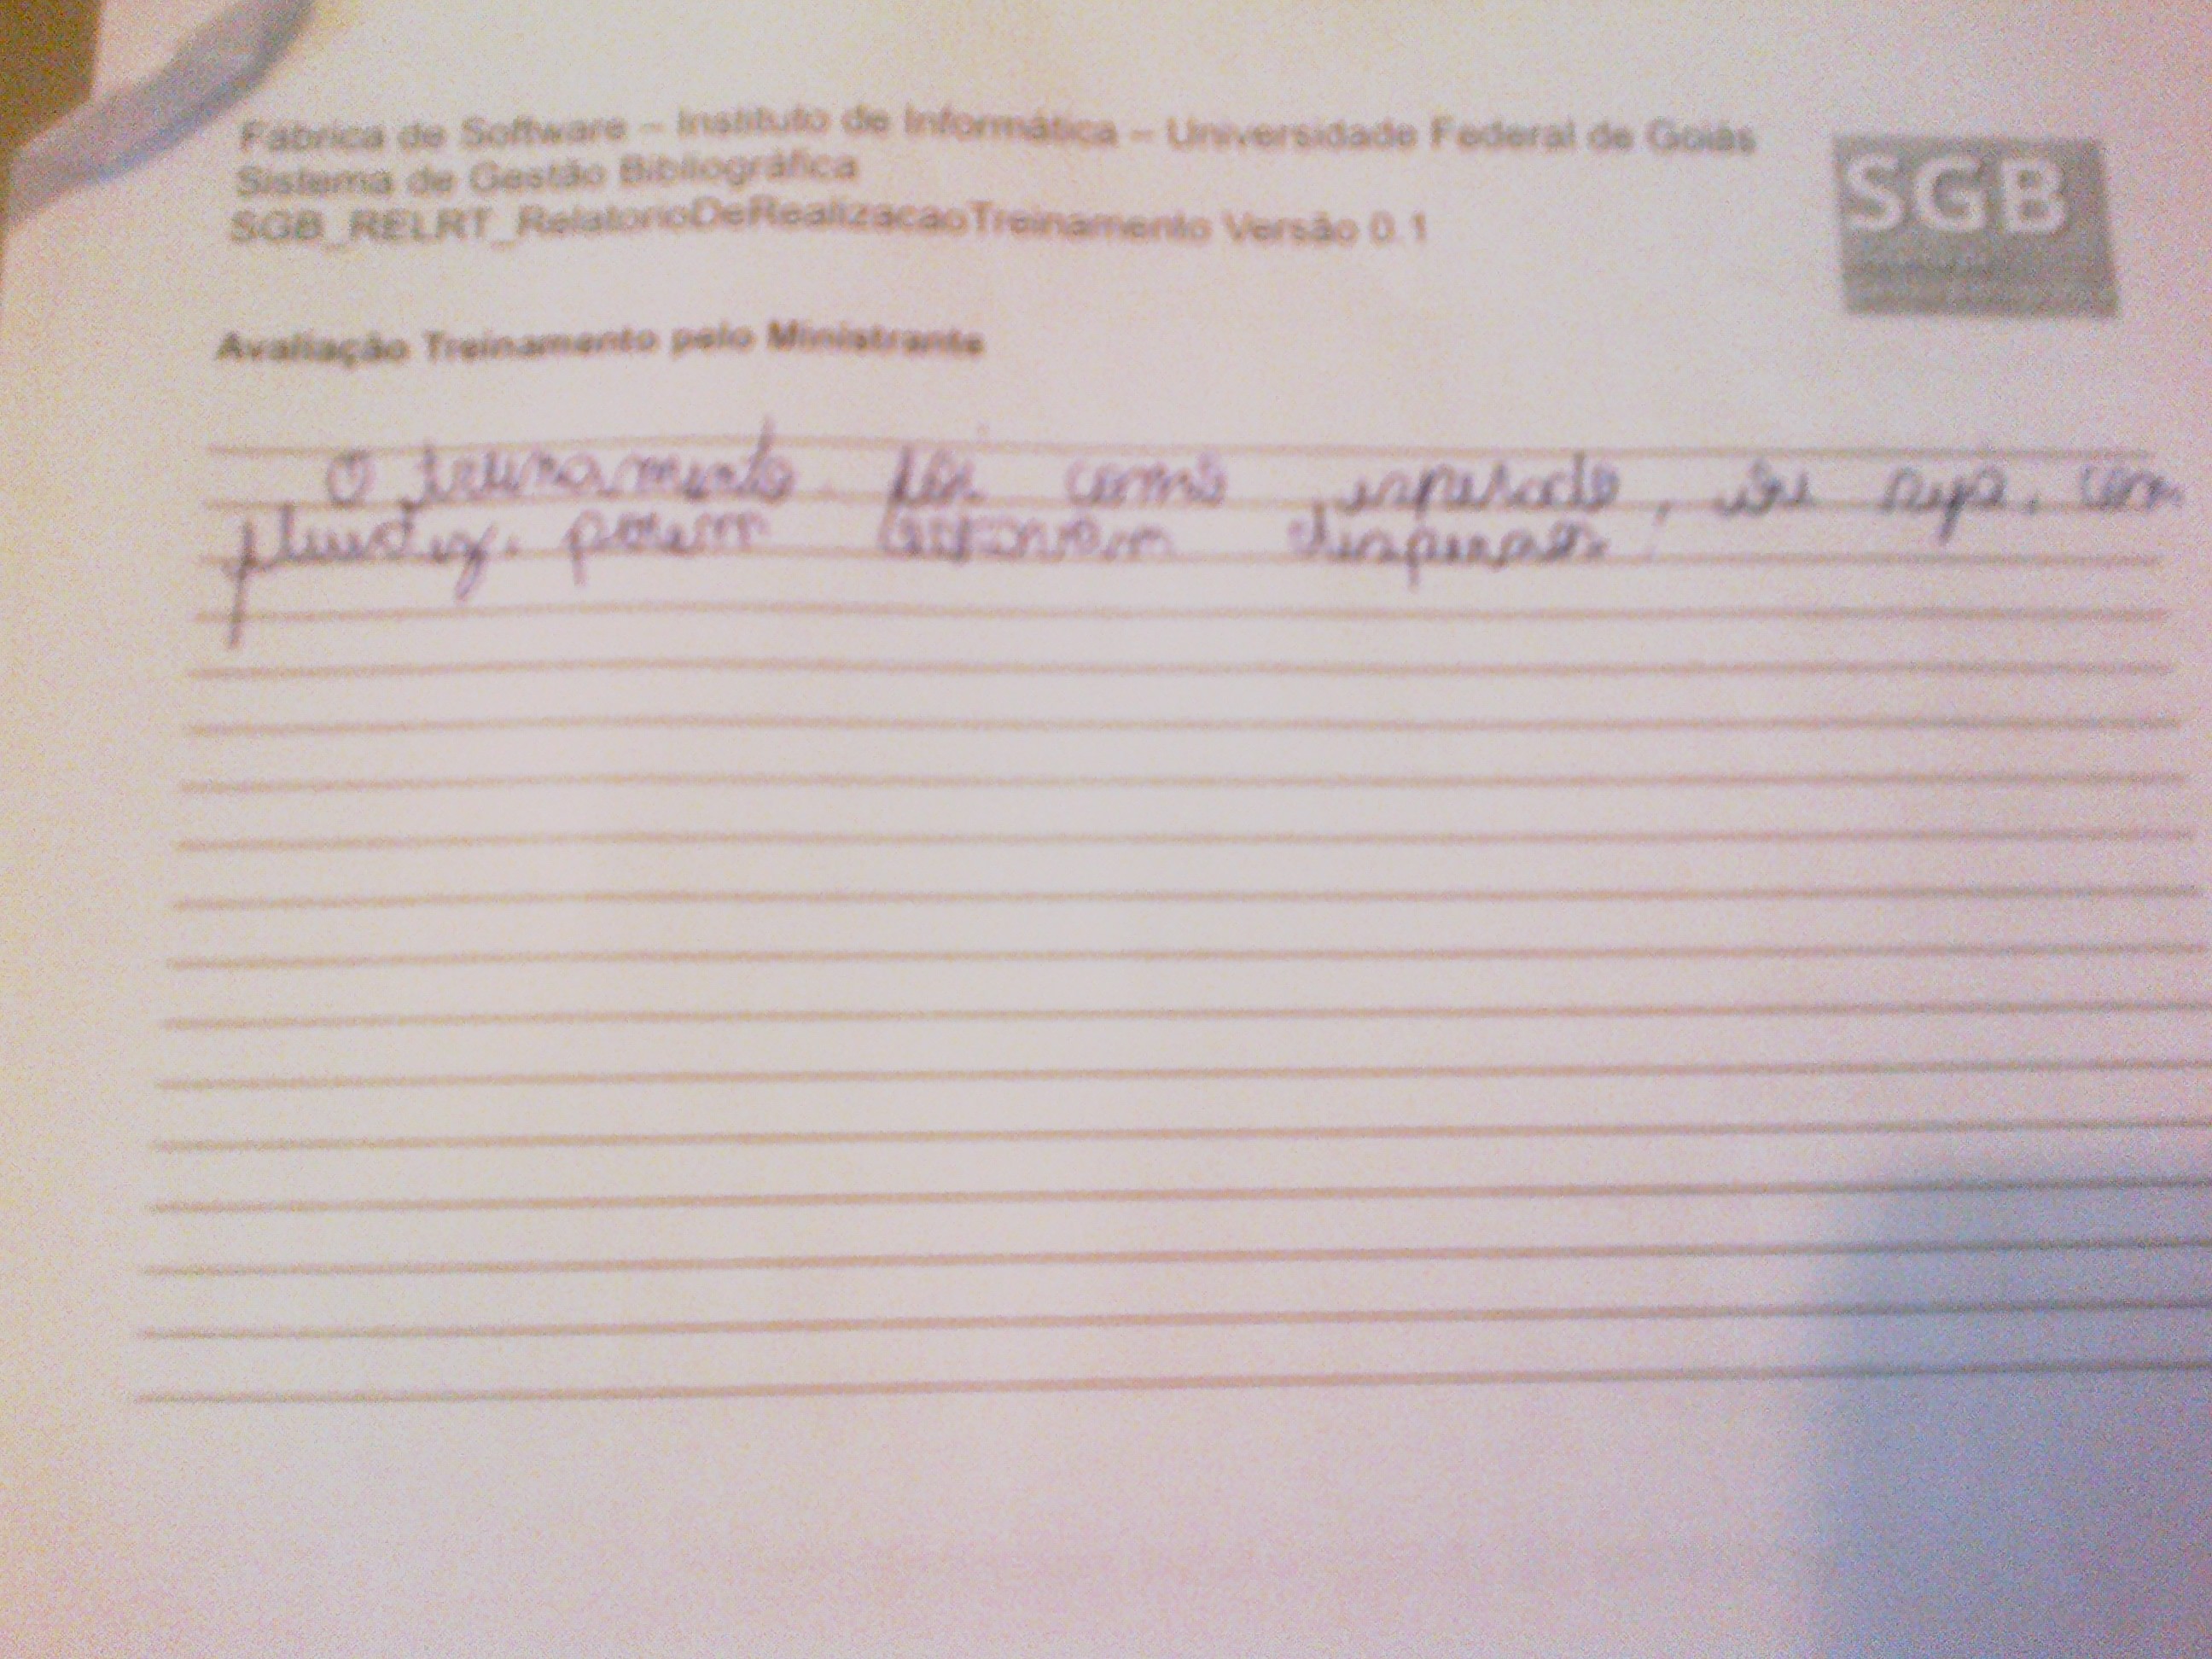 Fábrica de Software – Instituto de Informática – Universidade Federal de Goiás
Sistema de Gestão Bibliográfica
SGB_RELRT_RelatorioDeRealizacaoTreinamento Versão 0.1
SGB
Avaliação Treinamento pelo Ministrante
O treinamento foi como esperado, ou seja, com
fluidez, porem dispersos.